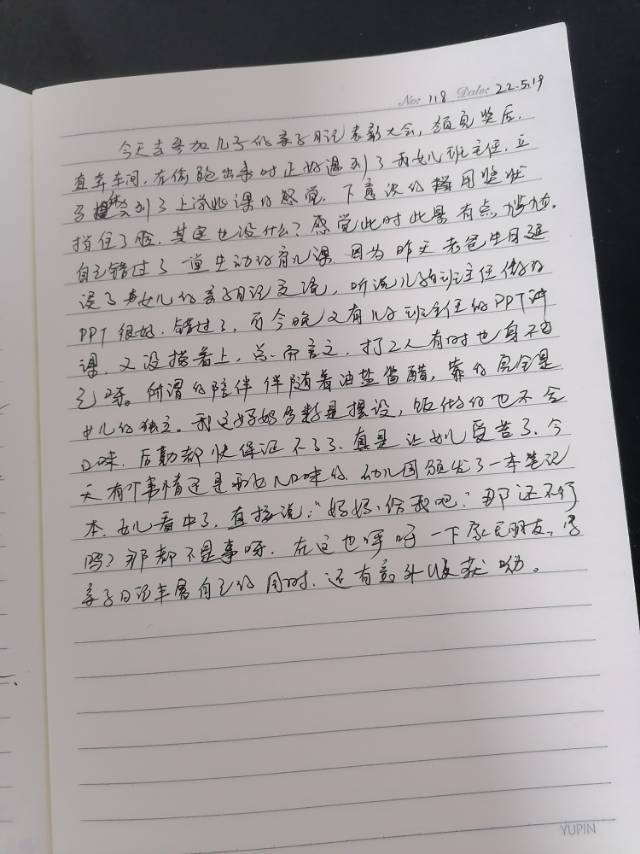 No: 118 Date: 22.5.19
今天去参加儿子的亲子日记表彰大会,领完奖后,
直奔车间,在偷跑出来时正好遇到了女儿班主任,立
马找到了上学逃课的感觉,下意识的用奖状
挡住了脸,其实也没什么?感觉此时此景有点尴尬,
自己错过了一堂生动的育儿课,因为昨天老爸生日延
误了女儿的亲子日记交流,听说儿的班主任做的
PPT很好,错过了,而今晚又有儿的班主任的PPT讲
课,又没撘着上,总而言之,打工人有时也身不由
己呀。所谓的陪伴伴随着油盐酱醋,靠的完全是
女儿的独立。我这好妈多数是摆设,饭做的也不合
口味,后勤都快保证不了了,真是让女儿受苦了,今
天有个事情还是和女儿口味的,幼儿园颁发了一本笔记
本,女儿看中了,直接说:“妈妈,给我吧,”那还不行
吗?那都不是事呀,在这也呼吁一下家长朋友,写
亲子日记丰富自己的同时,还有意外收获哟。
YUPIN